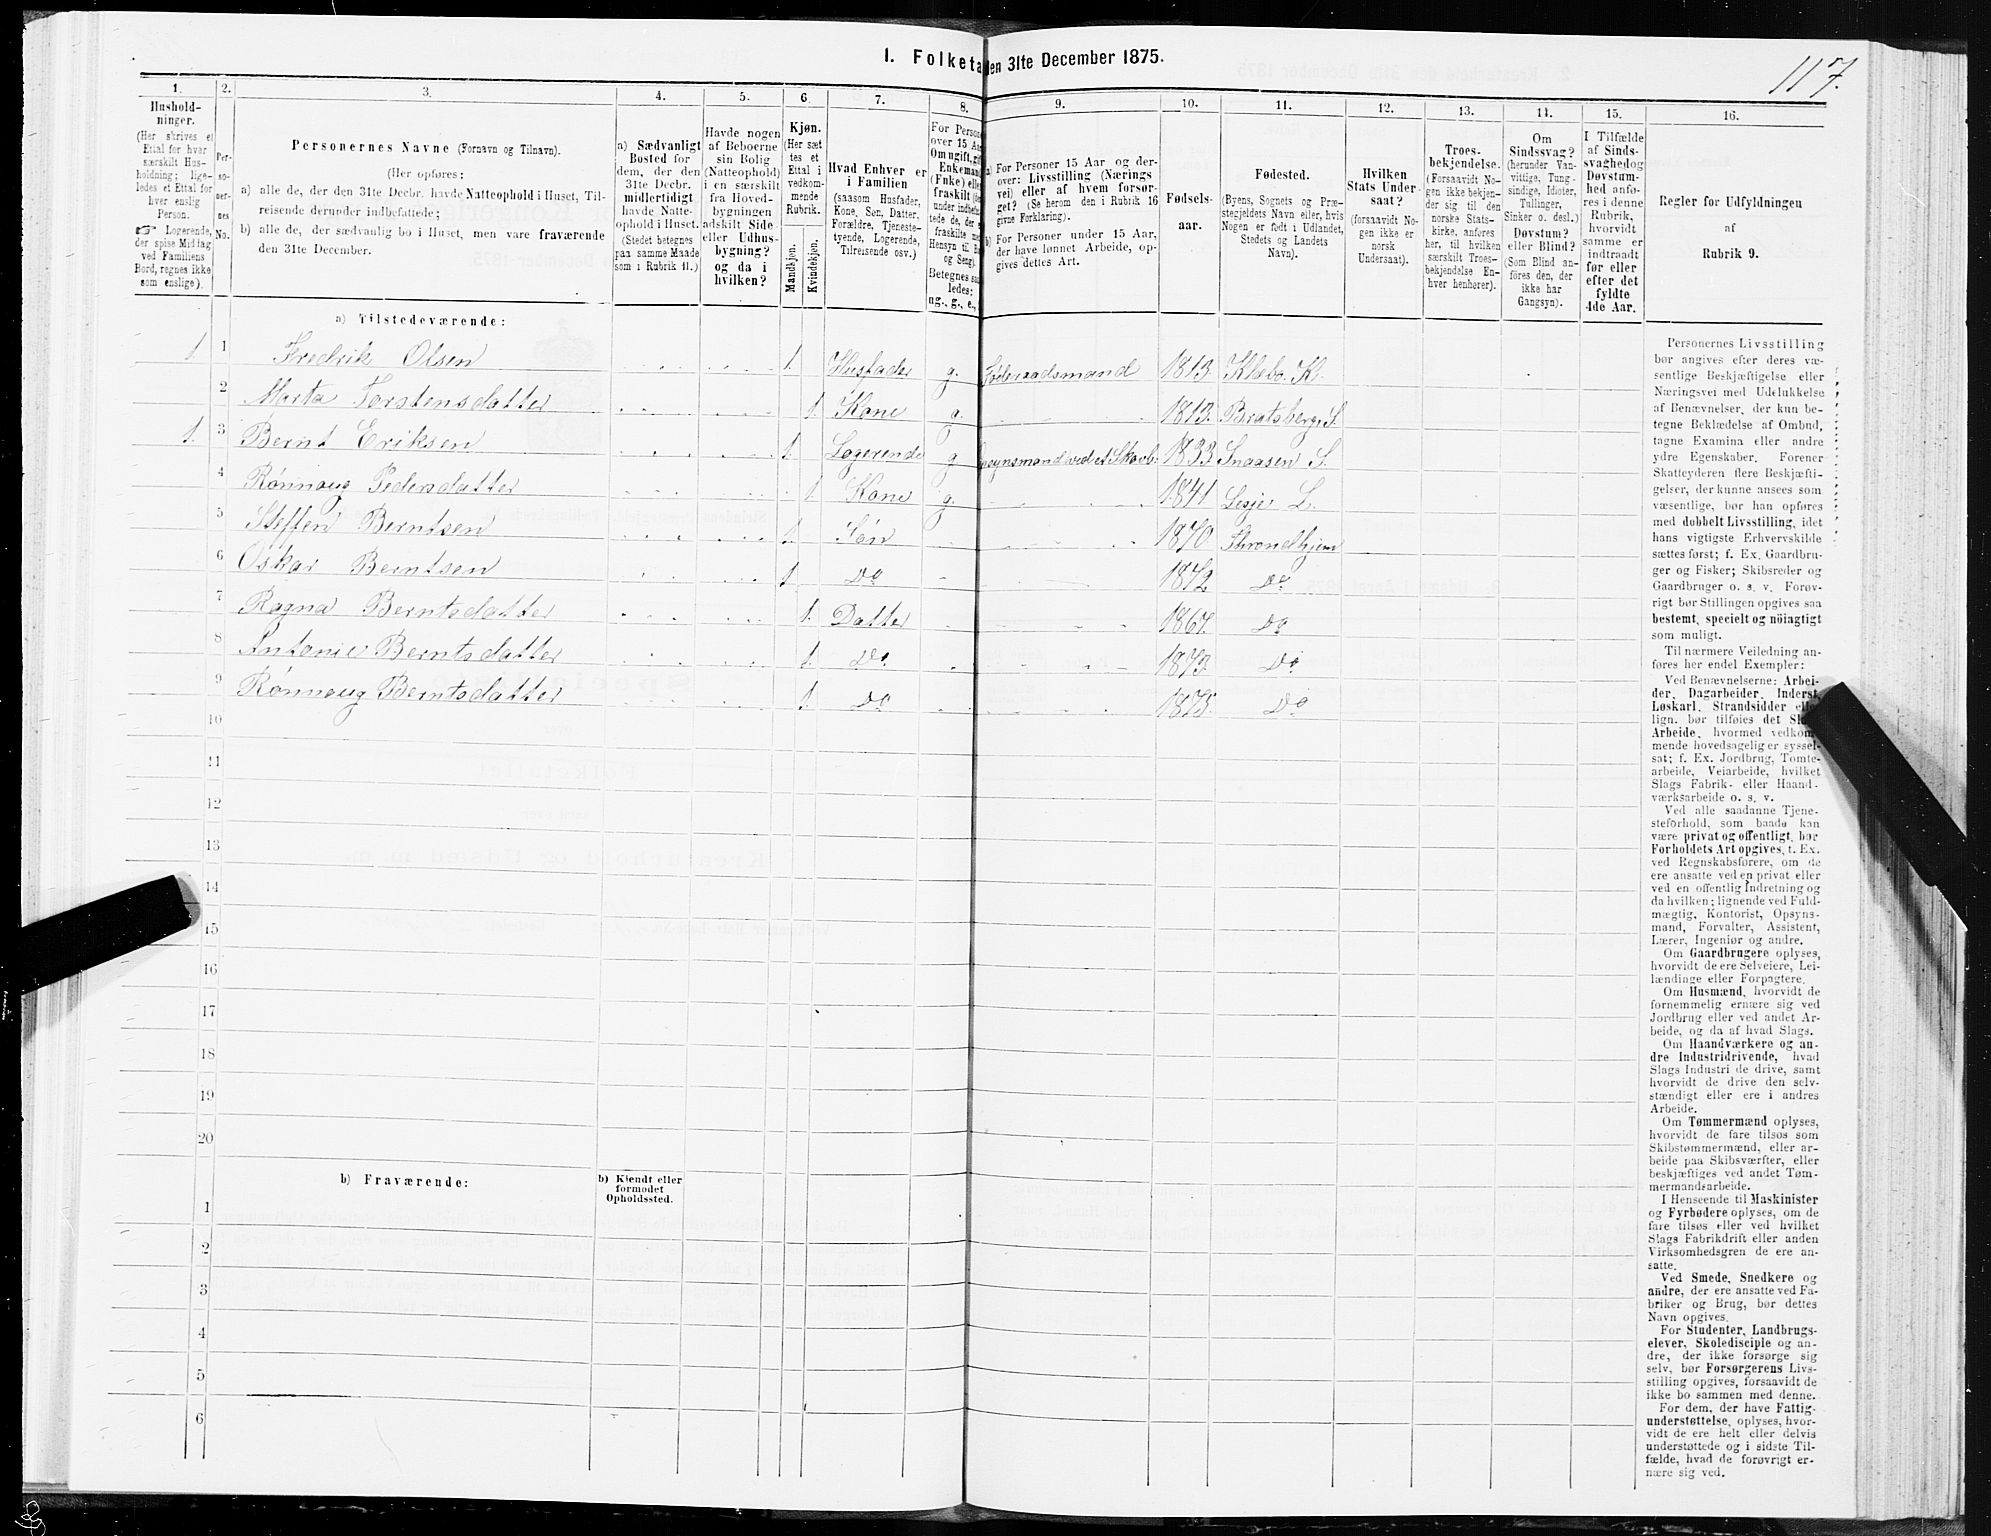 117.
1. Folketa
den 31te December 1875.
1. 2. 3. 4. 5. 6. 7. 8. 9. 10. 11. 12. 13. 14. 15. 16.
Hushold-
ninger.
(Her skrives et
Ettal for hver
særskilt Hus-
holdning; lige-
ledes et Ettal for
hver enslig
Person.
☞ Logerende,
der spise Middag
ved Familiens
Bord, regnes ikke
som enslige).
Per-
so-
ner-
nes
No.
Personernes Navne (Fornavn og Tilnavn).
(Her opføres:
a) alle de, der den 31te Decbr. havde Natteophold i Huset, Til-
reisende derunder indbefattede;
b) alle de, der sædvanlig bo i Huset, men vare fraværende
den 31te December.
a) Sædvanligt
Bosted for
dem, der den
31te Decbr.
midlertidigt
havde Natte-
ophold i Huset.
(Stedet betegnes
paa samme Maade
som i Rubrik 11.)
Havde nogen
af Beboerne
sin Bolig
(Natteophold)
i en særskilt
fra Hoved-
bygningen
adskilt Side-
eller Udhus-
bygning?
og da i
hvilken?
Kjøn.
(Her sæt
tes et
Ettal i
vedkom-
mende
Rubrik.
Mandkjøn.
Kvindekjøn.
Hvad Enhver er
i Familien
(saasom Husfader,
Kone, Søn, Datter,
Forældre, Tjeneste-
tyende, Logerende,
Tilreisende osv.)
For Person
over 15 Aar
Om ugift, gift
Enkemand
(Enke) eller
fraskilt
Betegnes saa
ledes:
ug., g., e.,
a) For Personer 15 Aar og der-
over: Livsstilling (Nærings
vei) eller af hvem forsør-
get? (Se herom den i Rubrik 16
givne Forklaring).
b) For Personer under 15 Aar,
der have lønnet Arbeide, op-
gives dettes Art.
Fødsels-
aar.
Fødested.
(Byens, Sognets og Præ-
stegjeldets Navn eller, hvis
Nogen er født i Udlandet,
Stedets og Landets
Navn).
Hvilken
Stats Under-
saat?
(forsaavidt No-
gen ikke er
norsk
Undersaat).
Troes-
bekjendelse.
(Forsaavidt No-
gen ikke bekjen-
der sig til den
norske Stats-
kirke, anføres
her, til hvilken
særskilt Troes-
bekjendelse En-
hver henhører).
Om
Sindssvag?
(herunder Van-
vittige, Tung-
sindige, Idioter,
Tullinger,
Sinker o. desl.)
Døvstum?
eller Blind?
(Som Blind an-
føres den, der
ikke har
Gangsyn).
I Tilfælde
af Sinds-
svaghed og
Døvstum-
hed anfø-
res i denne
Rubrik,
hvorvidt
samme er
indtraadt
før eller
efter det
fyldte
4de Aar.
Regler for Udfyldningen
af
Rubrik 9.
a) Tilstedeværende:
1. 1 Fredrik Olsen 1. Husfader g. Føderaadsmand 1813. Klæbo. K.
2 Marta Torstensdatter 1. Kone g. 1813. Bratsberg. S.
1. 3 Bernt Eriksen 1. Logerende g Opsynsmand ved et Skovb. 1833. Snaasen S.
4 Rønnoug Pedersdatter 1. Kone g. 1841 Lesje L.
5 Steffen Berntsen 1. Søn 1870. Throndhjem
6 Oskar Berntsen 1 Do 1872. Do
7 Ragna Berntsdatter 1. Datter 1867. Do
8 Antonie Berntsdatter 1. Do. 1873. Do
9 Rønnoug Berntsdatter 1. Do. 1875. Do
10
11
12
13
14
15
16
17
18
19
20
b) Fraværende:
b) Kjendt eller
formodet
Opholdssted.
1
2
3
4
5
6
Personernes Livsstilling
bør angives efter deres væ-
sentlige Beskjæftigelse eller
Næringsvei med Udelukkelse
af Benævnelser, der kun be-
tegne Beklædelse af Ombud,
tagne Examina eller andre
ydre Egenskaber. Forener
Skatteyderen flere Beskjæfti-
gelser, der kunne ansees som
væsentlige, bør han opføres
med dobbelt Livsstilling, idet
hans vigtigste Erhvervskilde
sættes først; f. Ex. Gaardbru-
ger og Fisker; Skibsreder og
Gaardbruger o. s. v. Forøv-
rigt bør Stillingen opgives saa
bestemt, specielt og nöiagtigt
som muligt.
Til nærmere Veiledning an-
føres her endel Exempler:
Ved Benævnelserne: Arbei-
der, Dagarbeider, Inderst,
Løskarl, Strandsidder eller
lign. bør tilføies det Slags
Arbeide, hvormed vedkom-
mende hovedsagelig er syssel-
sat; f. Ex. Jordbrug, Tomte-
arbeide, Veiarbeide, hvilket
Slags Fabrik- eller Haand-
værksarbeide o. s. v.
Ved alle saadanne Tjene-
steforhold, som baade kan
være privat og offentligt, bør
Forholdets Art opgives, t. Ex.
ved Regnskabsførere, om de
ere ansatte ved en privat eller
ved en offentlig Indretning og
da hvilken; lignende ved Fuld-
mægtig, Kontorist, Opsyns-
mand, Forvalter, Assistent,
Lærer, Ingeniør og andre.
Om Gaardbrugere oplyses,
hvorvidt de ere Selveiere, Lei-
lændinge eller Forpagtere.
Om Husmænd, hvorvidt de
fornemmelig ernære sig ved
Jordbrug eller ved andet Ar-
beide, og da af hvad Slags.
Om Haandværkere og an-
dre Industridrivende, hvad
Slags Industri de drive, samt
hvorvidt de drive den selv-
stændigt eller ere i andres
Arbeide.
Om Tømmermænd oplyses,
hvorvidt de fare tilsøs som
Skibstømmermænd, eller ar-
beide paa Skibsværfter, eller
beskjæftiges ved andet Tøm-
mermandsarbeide.
I Henseende til Maskinister
og Fyrbødere oplyses, om de
fare tilsøs eller ved hvilket
Slags Fabrikdrift eller anden
Virksomhedsgren de ere an-
satte.
Ved Smede, Snedkere og
andre, der ere ansatte ved Fa-
briker og Brug, bør dettes
Navn opgives.
For Studenter, Landbrugs-
elever, Skoledisciple og an-
dre, der ikke forsørge sig
selv, bør Forsørgerens Livs-
stilling opgives, forsaavidt de
ikke bo sammen med denne.
For dem, der have Fattig-
understøttelse, oplyses, hvor-
vidt de ere helt eller delvis
understøttede og i sidste Til-
fælde, hvad de forøvrigt er-
nære sig ved.